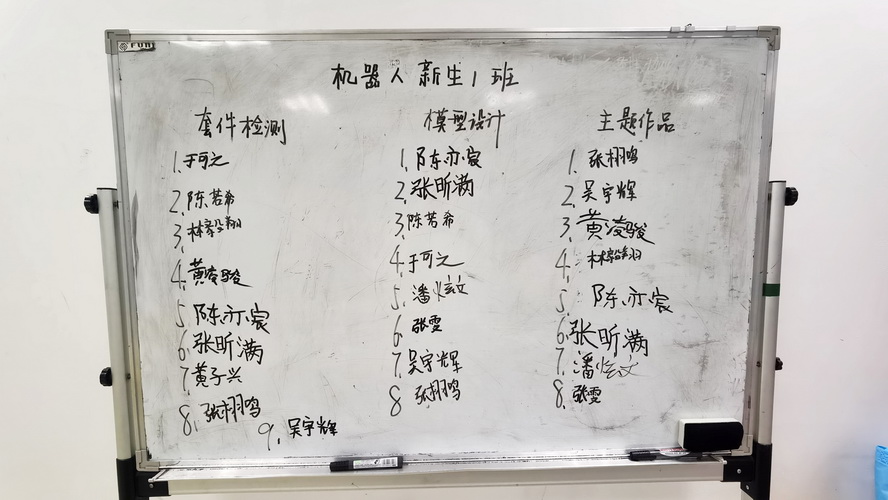 机器人新生1班
套件检测
1.于可之
2.陈若希
3.林毅翔
4.黄凌骏
5.陈亦宸
6.张昕满
7.黄子兴
8.张栩鸣
9.吴宇辉
模型设计
1.陈亦宸
2.张昕满
3.陈若希
4.于可之
5.潘炫文
6.张雯
7.吴宇辉
8.张栩鸣
主题作品
1.张栩鸣
2.吴宇辉
3.黄凌骏
4.林毅翔
5.陈亦宸
6.张昕满
7.潘炫文
8.张雯